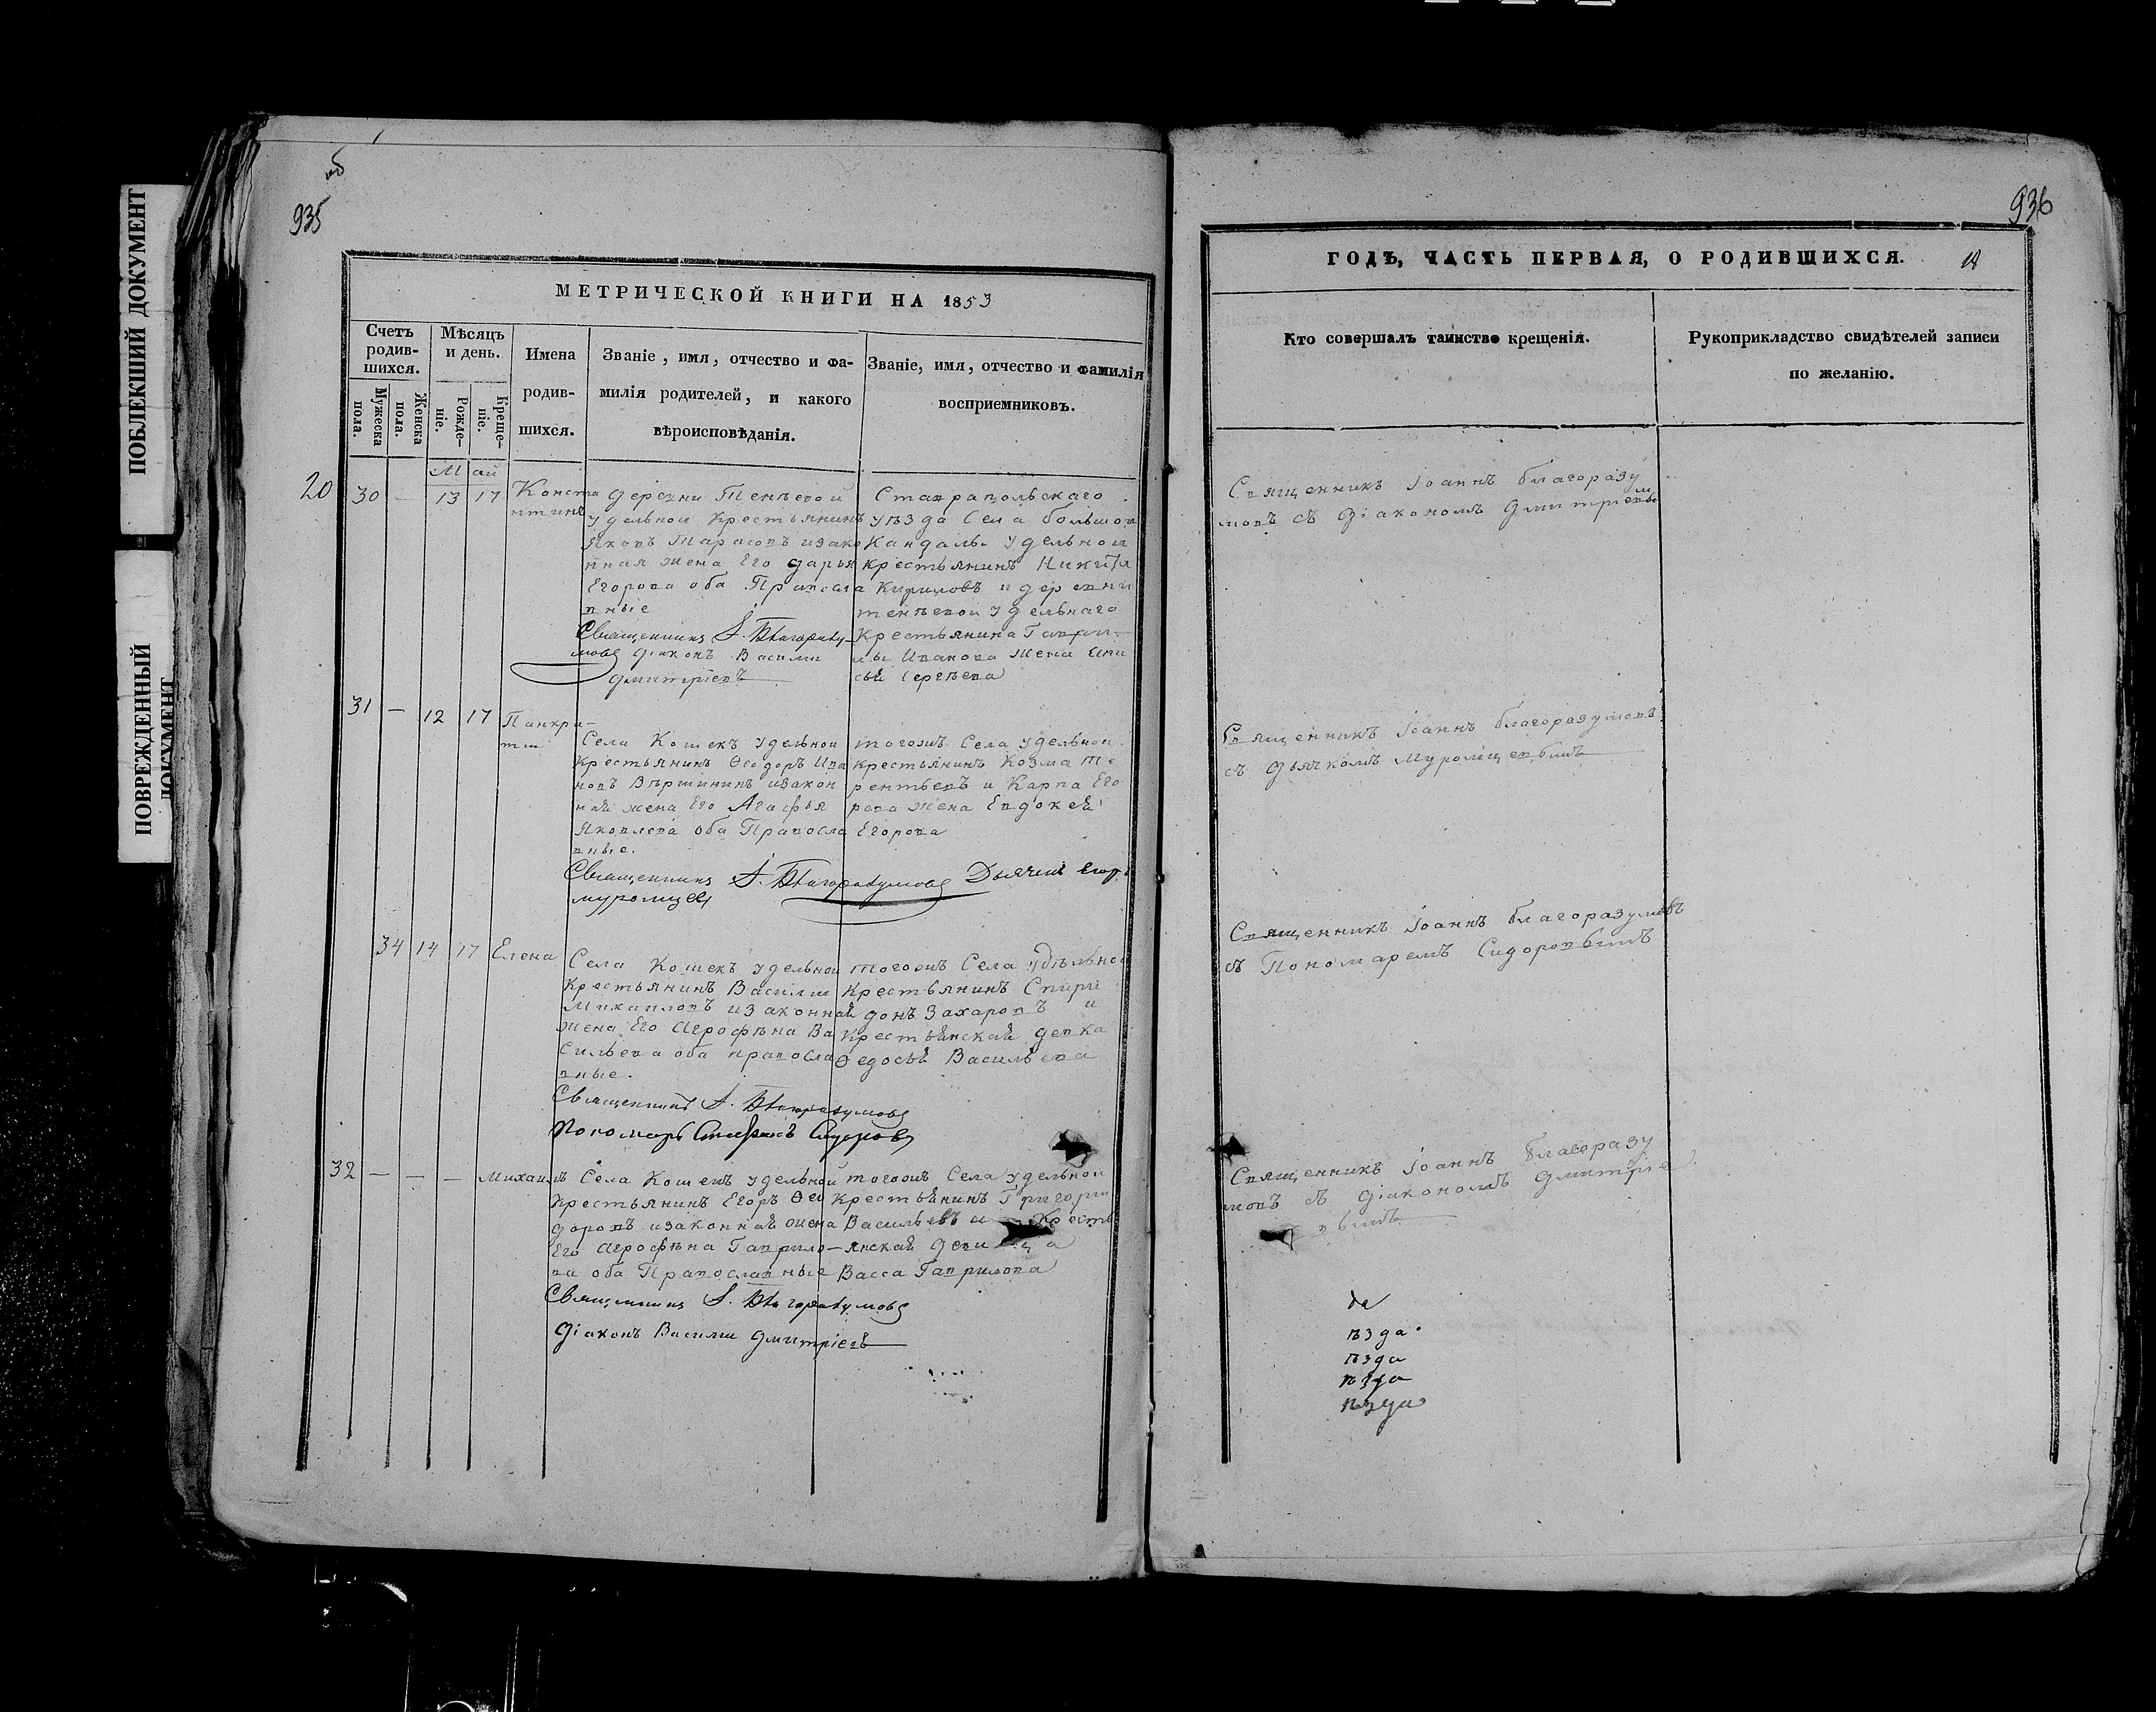 ПОБЛЕКШИЙ ДОКУМЕНТ
ПОВРЕЖДЕННЫЙ
ДОКУМЕНТ
935
МЕТРИЧЕСКОЙ КНИГИ НА 1853
Счетъ родив-шихся.
Мужеска пола.
Женска пола.
Мѣсяцъ и день.
Рожде-ніе.
Креще-ніе.
Имена родив-шихся.
Званіе, имя, отчество и фа-
милія родителей, и какого
вѣроисповѣданія.
Званіе, имя, отчество и фамилія
восприемниковъ.
Май
20
30 — 13 17 Конста
нтинъ
деревни Тенѣевой
удельной Крестьянинъ
Яковъ Тарасовъ изако
нная жена Его дарья
Егорова оба Правосла
вные
Священникъ І. Благоразу-
мовъ діаконъ Василій
дмитріевъ
Ставрапольскаго
уѣзда Села большой
Кандалы удельной
крестьянинъ Никита
Кириловъ и деревни
тенѣевой удельнаго
Крестьянина Гаври-
лы Иванова жена Ани
сья Сергѣева
31 — 12 17 Панкра-
тій
Села Кошекъ удельной
крестьянинъ Ѳеодоръ Ива
новъ Вѣршининъ изакон
ная жена Его Агафья
Яковлева оба Правосла
вные.
тогожъ Села удельной
крестьянинъ Козма Те
рентьевъ и Карпа Его
рова жена Евдокея
Егорова
Священникъ І. Благоразумовъ Дьячекъ Егоръ
муромцевъ
34 14 17 Елена
Села Кошекъ удельной
Крестьянинъ Василій
Михаиловъ изаконная
жена Его Агрофѣна Ва
сильева оба правосла
вные.
тогожъ Села удѣльной
Крестьянинъ Спири
донъ Захаровъ и
Крестьянская девка
Ѳедосья Васильева
Священникъ І. Благоразумовъ
Пономарь Стефанъ Сидоровъ
32 — — — Михаилъ
Села Кошекъ удельной
Крестьянинъ Егоръ Ѳео
доровъ изаконная жена
Его Агрофѣна Гаврило-
ва оба Православные
тогожъ Села удельной
Крестьянинъ Григорій
Васильевъ и Кресть
янская девица
Васса Гаврилова
Священникъ І. Благоразумовъ
діаконъ Василій дмитріевъ
936
ГОДЪ, ЧАСТЬ ПЕРВАЯ, О РОДИВШИХСЯ.
Кто совершалъ таинство крещенія.
Рукоприкладство свидѣтелей записи
по желанію.
Священникъ Іоаннъ благоразу
мовъ съ діакономъ дмитріевы
м
Священникъ Іоаннъ благоразумовъ
съ дьячкомъ Муромцевымъ
Священникъ Іоаннъ благоразумовъ
съ Пономаремъ Сидоровымъ
Священникъ Іоаннъ благоразу
мовъ съ діакономъ дмитріе
вымъ
да
ѣзда
ѣзда
ѣзда
ѣзда